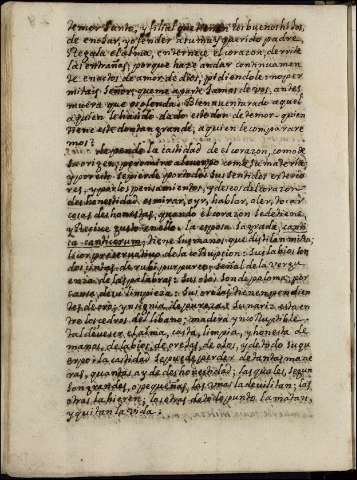 temor santo, y filial que tienen los buenos hijos,
de enojar, y ofender a tu muy querido padre.
Regala el alma, enternece el corazon, derrite
las entrañas, porque haze andar continuamen
te en actos de amor de dios, pidiendole: no per
mitais Señor, que me aparte Jamas de vos, antes
muera que os ofenda. Bienaventurado aquel
a quien le ha sido dado este don de temor. quien
tiene este don tan grande, a quien le comparare
mos?
la castidad de el corazon, como de
su origen; pero mira al cuerpo como su materia;
y por esto se pierde por todos sus sentidos exterio
res, y por los pensamientos, y deseos del corazon.
deshonestidad es mirar, oyr, hablar, oler, tocar
cosas deshonestas, quando el corazon se detiene,
y Recibe gusto en ello. la esposa sagrada,
canticorum; tiene sus manos que distilan mirra;
licor preservativo de la corrupcion: Sus labios son
dos cintas de rubi purpureo, señal de la verg
uenza de las palabras: Sus ojos son de paloma; por
causa de su limpieza: Sus orejas tienen pendien
tes de oro; ynsignia de pureza: Su nariz esta en
tre los cedros del libano: madera yncorruptible.
tal deve ser el alma, casta, limpia, y honesta de
manos, de labios, de orejas, de ojos, y de todo su cu
erpo. la castidad se puede perder de tantas mane
ras, quantas ay de deshonestidad; las quales, segun
son grandes, o pequeñas, las unas la devilitan; las
otras la hieren; las otras de todo punto la matan,
y quitan la vida: